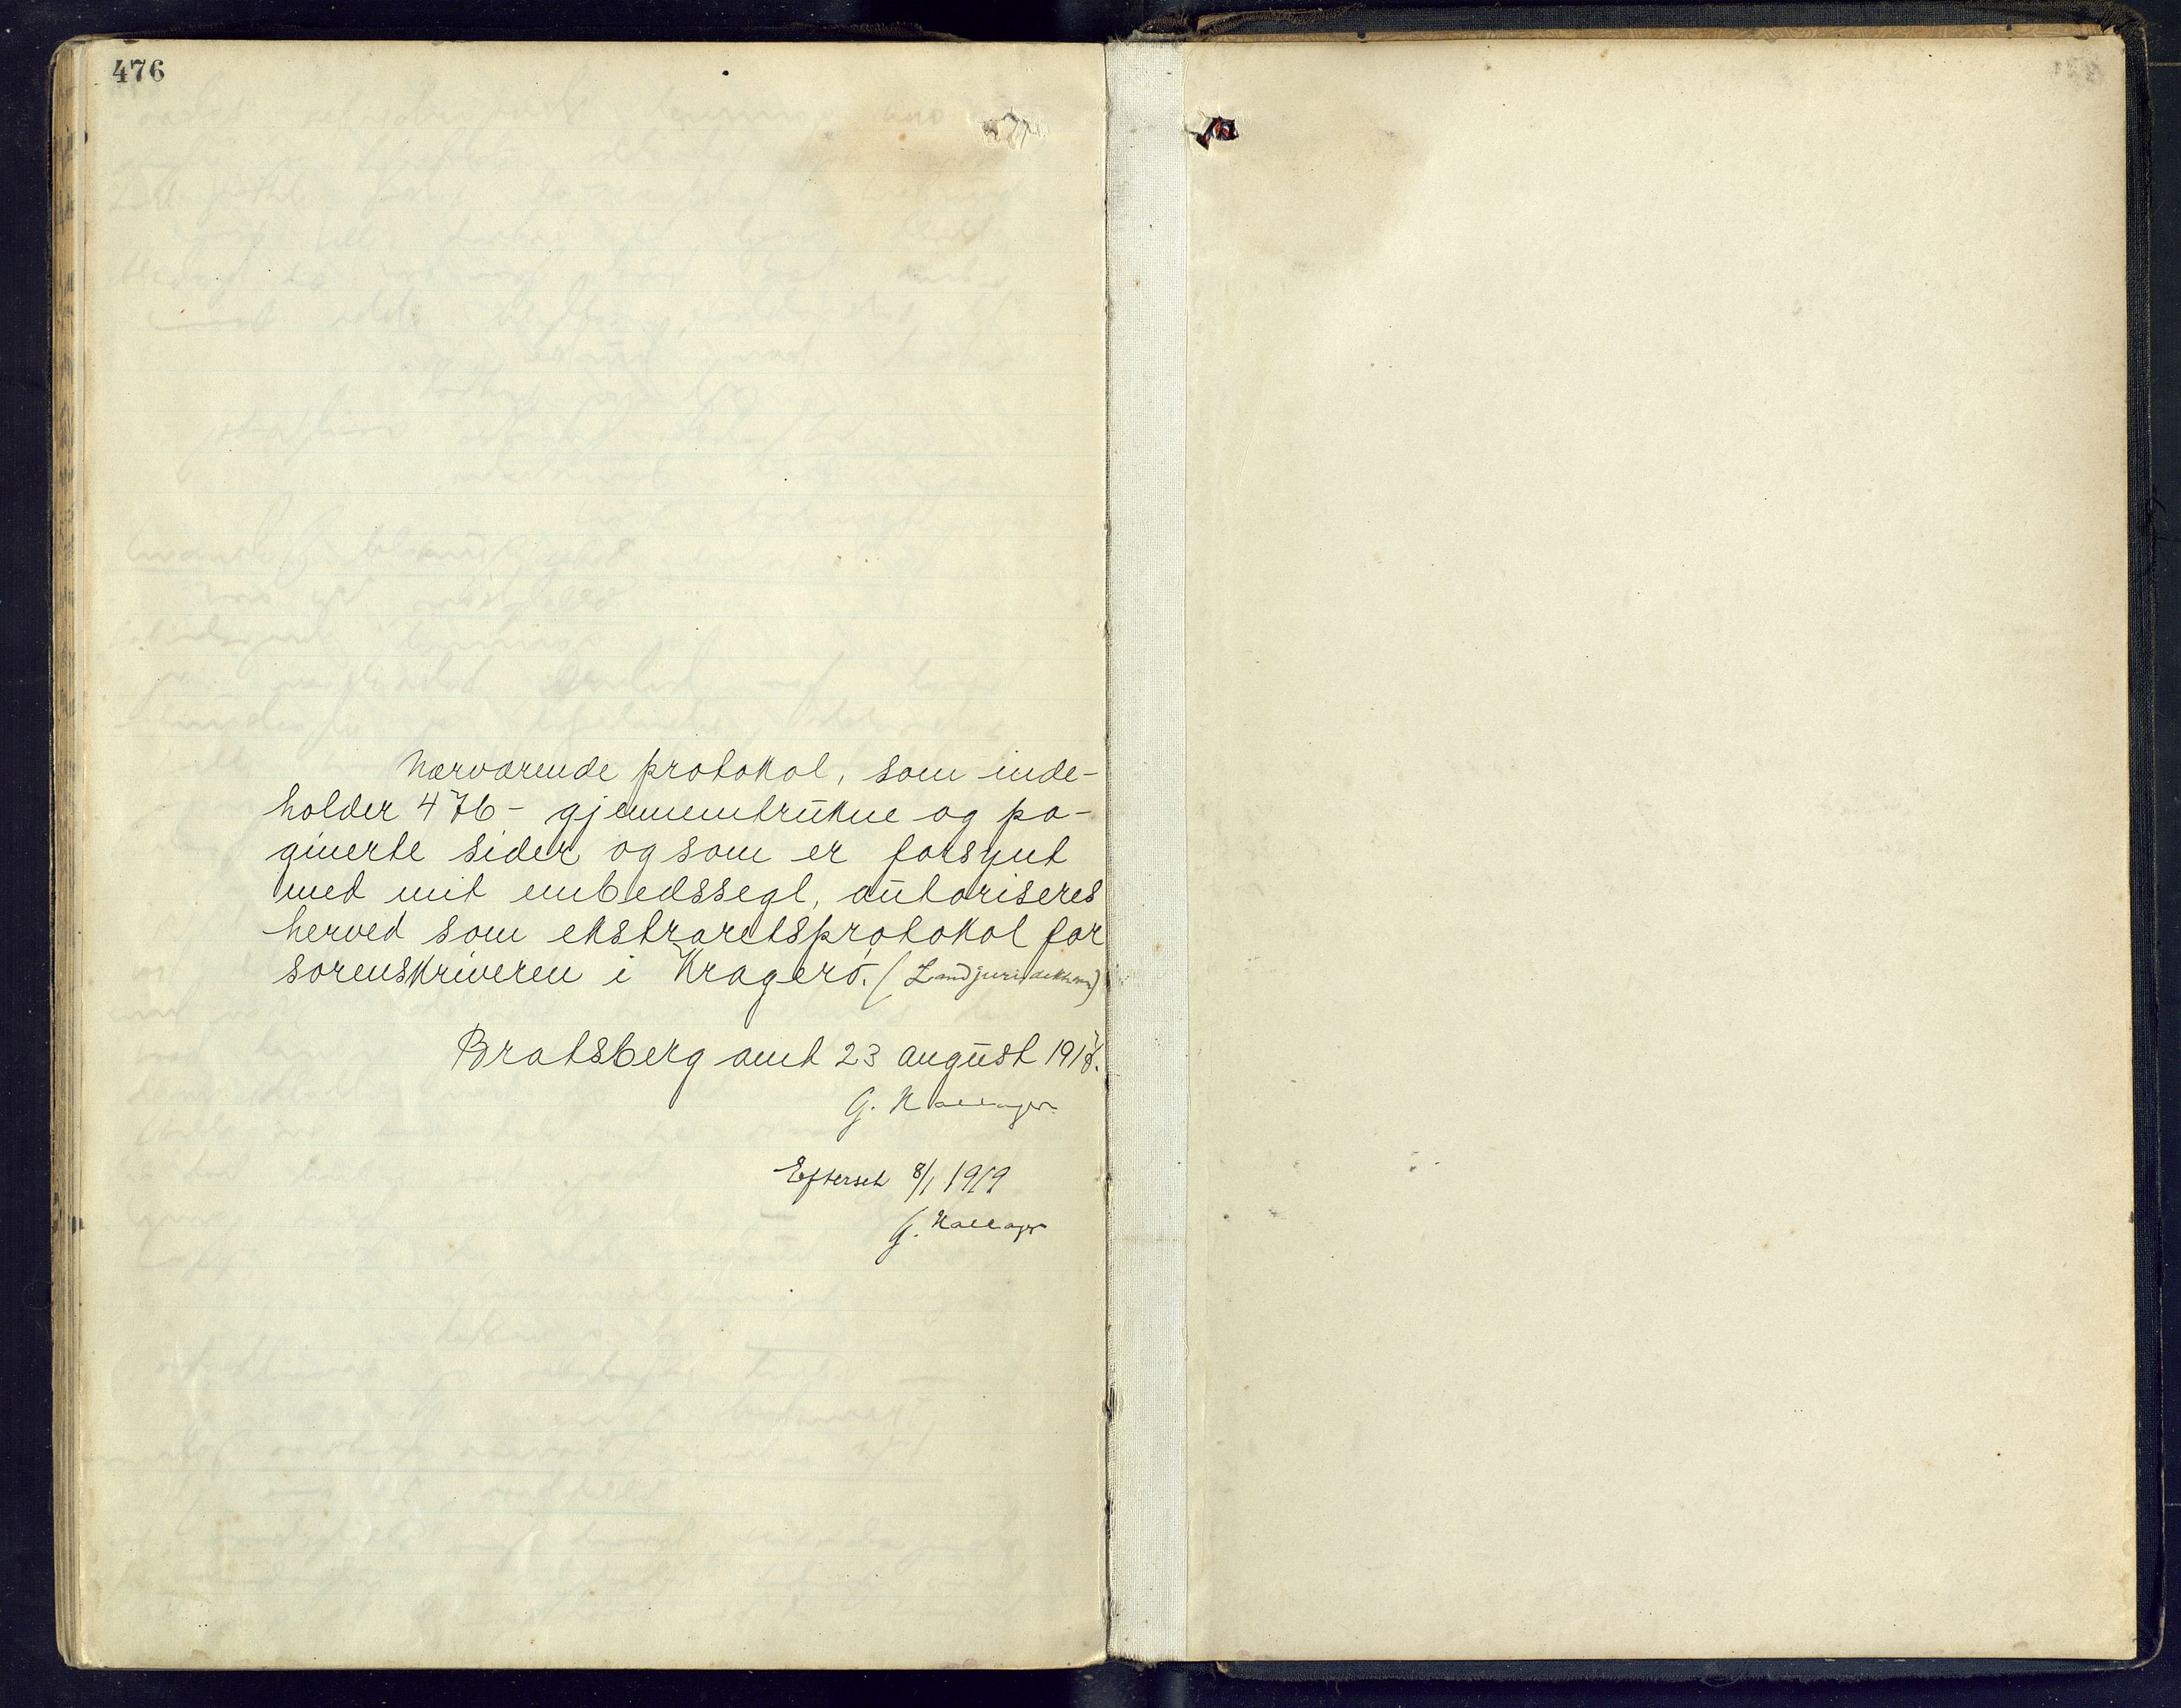 476
Nærværende protokol, som inde-
holder 476 - gjennemtrukne og pa-
ginerte sider og som er forsynt
med mit embedssegl, autoriseres
herved som ekstraretsprotokol for
sorenskriveren i Kragerö. (Landjurisdiktionen)
Bratsberg amt 23 august 1917.
G. Hallager
Efterset 8/1 1919
G. Hallager